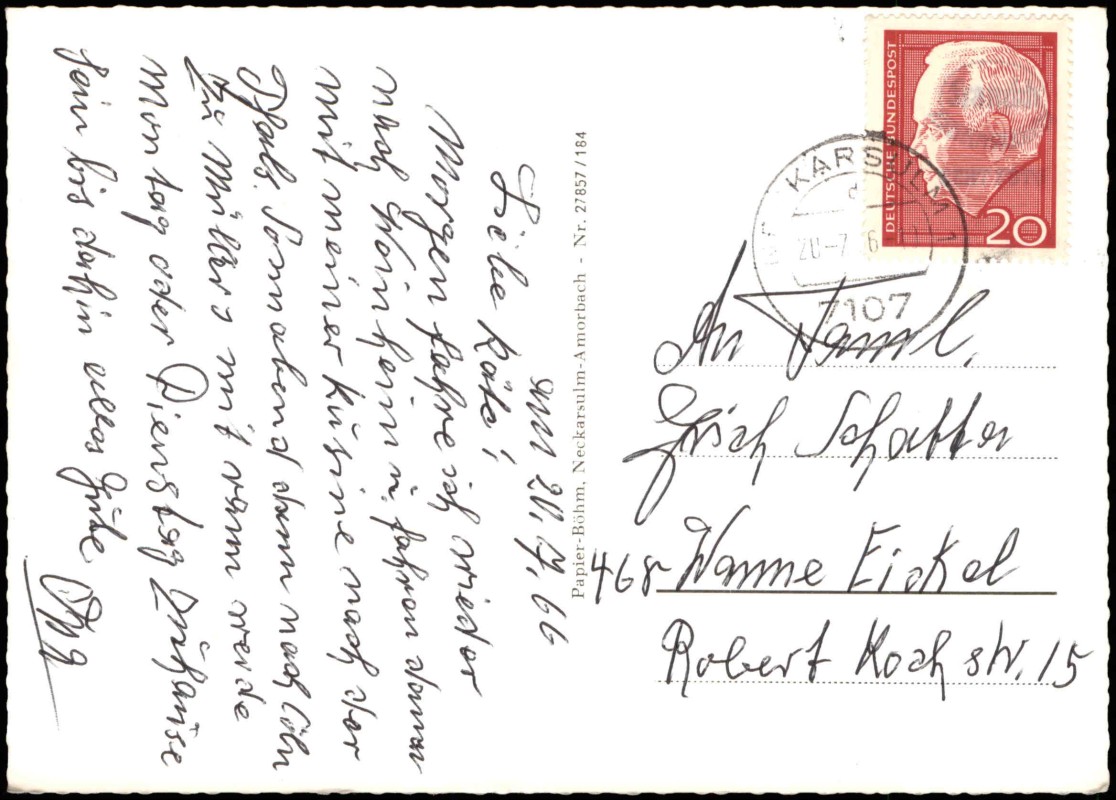 am 20.7.66
Liebe Käte!
Morgen fahre ich wieder
nach Weinheim u. fahren dann
mit meiner Kusine nach der
Pfalz. Sonnabend dann nach Cöln
zu Müllers mit
werde
Montag oder Dienstag Zuhause
sein bis dahin alles Gute
Papier-Böhm, Neckarsulm-Amorbach - Nr. 27857/184
DEUTSCHE BUNDESPOST
20
KARSULM 1
20.-7.6
7107
An Faml.
Erich Schatter
468 Wanne Eickel
Robert Koch str. 15